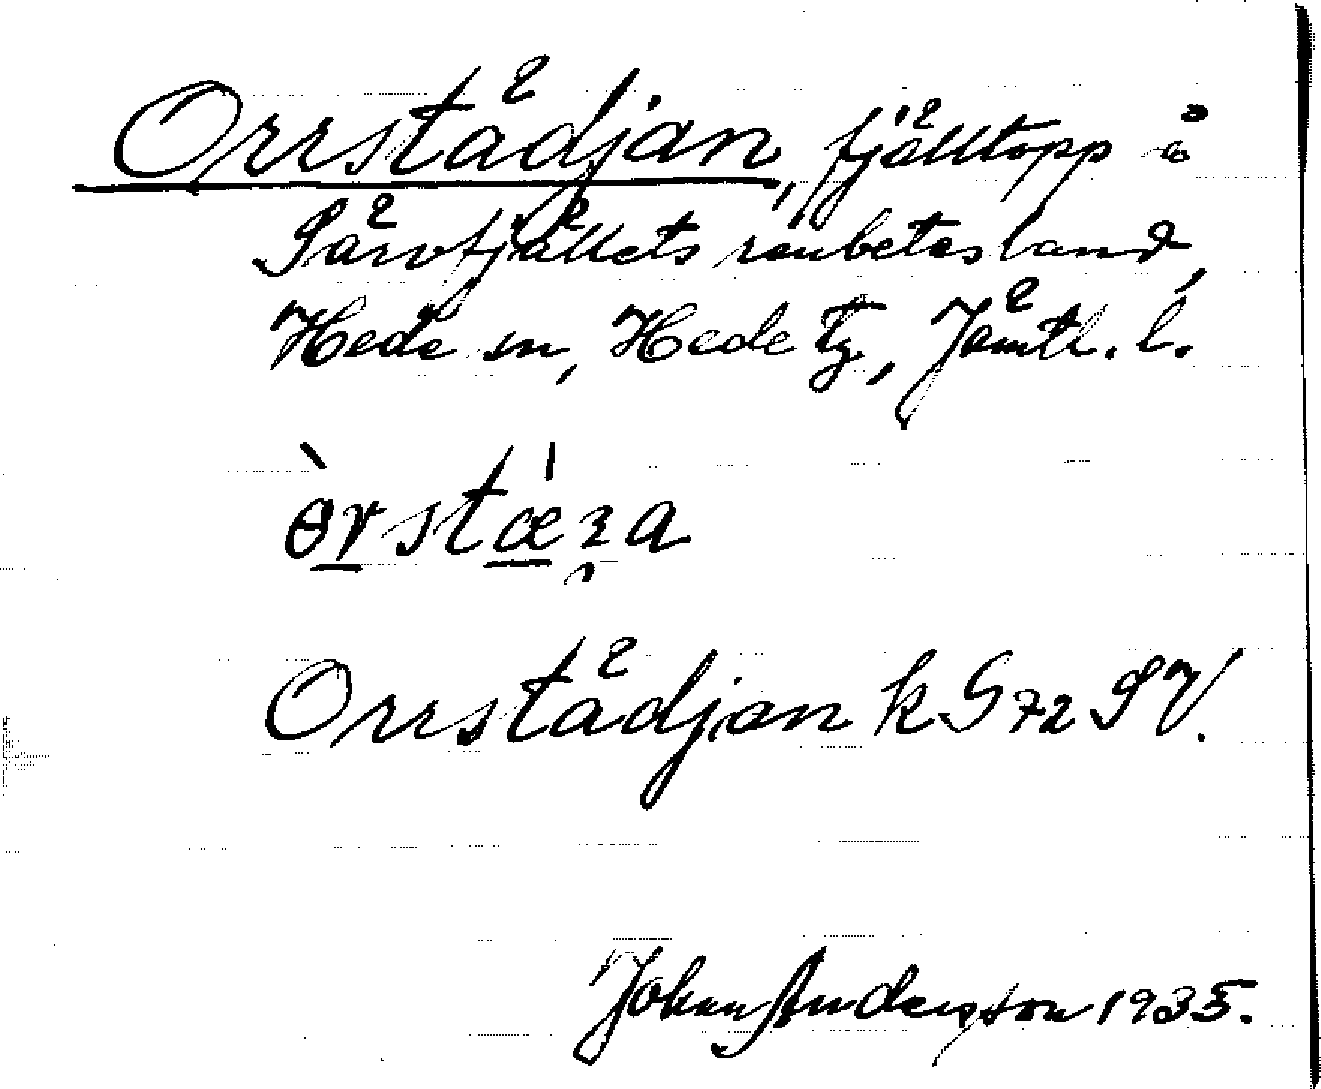 Orrstädjan, fjälltopp å
Särvfjällets renbetesland,
Hede sn, Hede tg, Jämtl. l.
ɵ̀rstǽʒa
Orrstädjan k G 72 SV.
Johan Anderson 1935.